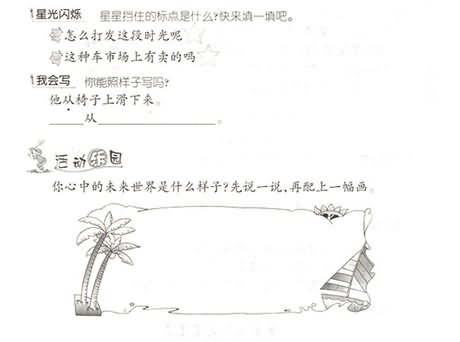 星光闪烁 星星挡住的标点是什么?快来填一填吧。
怎么打发这段时光呢
这种车市场上有卖的吗
我会写 你能照样子写吗?
他从椅子上滑下来。
______从____________________。
活动乐园
你心中的未来世界是什么样子?先说一说,再配上一幅画。